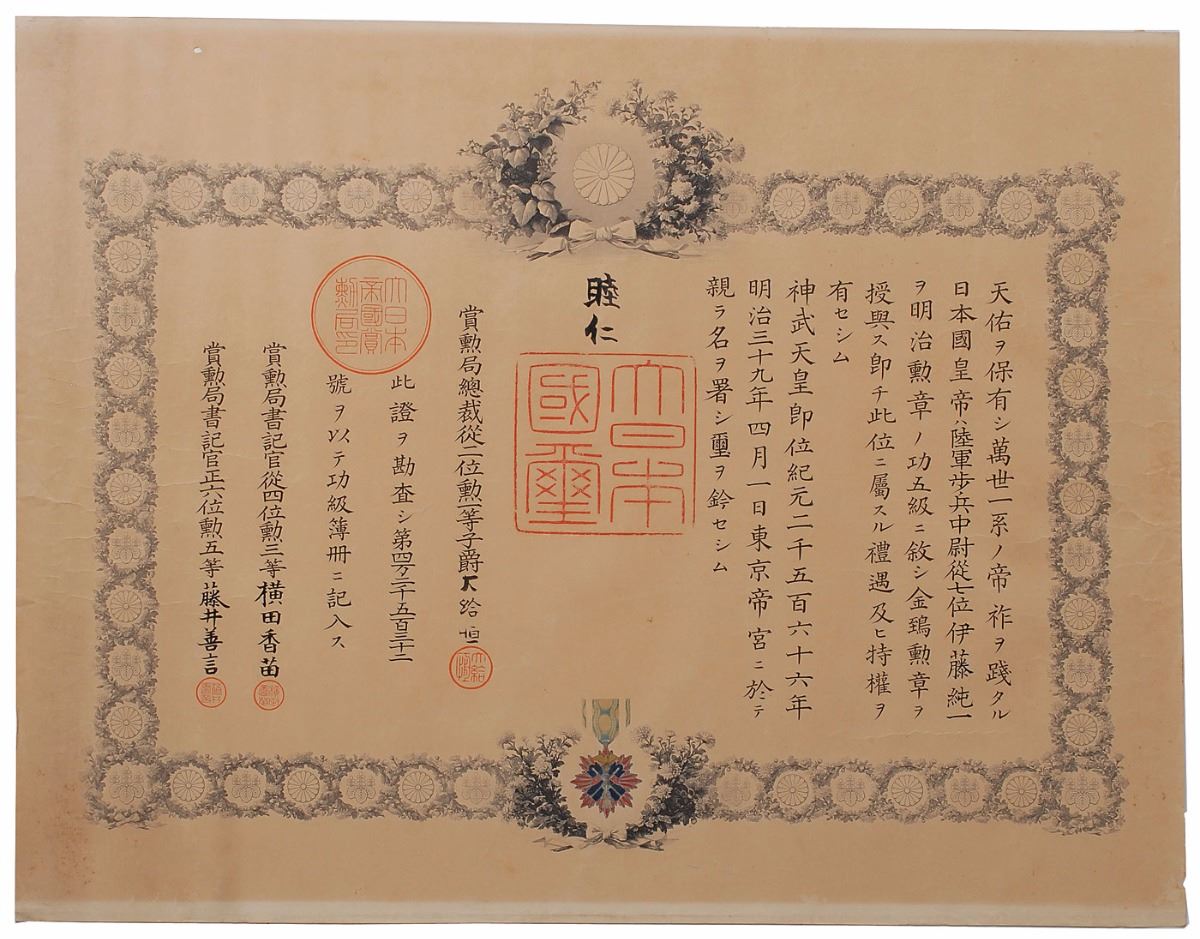 天佑ヲ保有シ萬世一系ノ帝祚ヲ踐タル
日本國皇帝ハ陸軍歩兵中尉從七位伊藤純一
ヲ明治勲章ノ功五級ニ敘シ金鵄勲章ヲ
授與ス即チ此位ニ屬スル禮遇及ヒ特權ヲ
有セシム
神武天皇即位紀元二千五百六十六年
明治三十九年四月一日東京帝宮ニ於テ
親ラ名ヲ署シ璽ヲ鈐セシム
睦仁
大日本
國璽
賞勲局總裁從二位勲一等子爵大給恒
大日本
帝國賞
勲局印
此證ヲ勘査シ第四万二千五百三十二
號ヲ以テ功級簿冊ニ記入ス
賞勲局書記官從四位勲三等横田香苗
賞勲局書記官正六位勲五等藤井善言